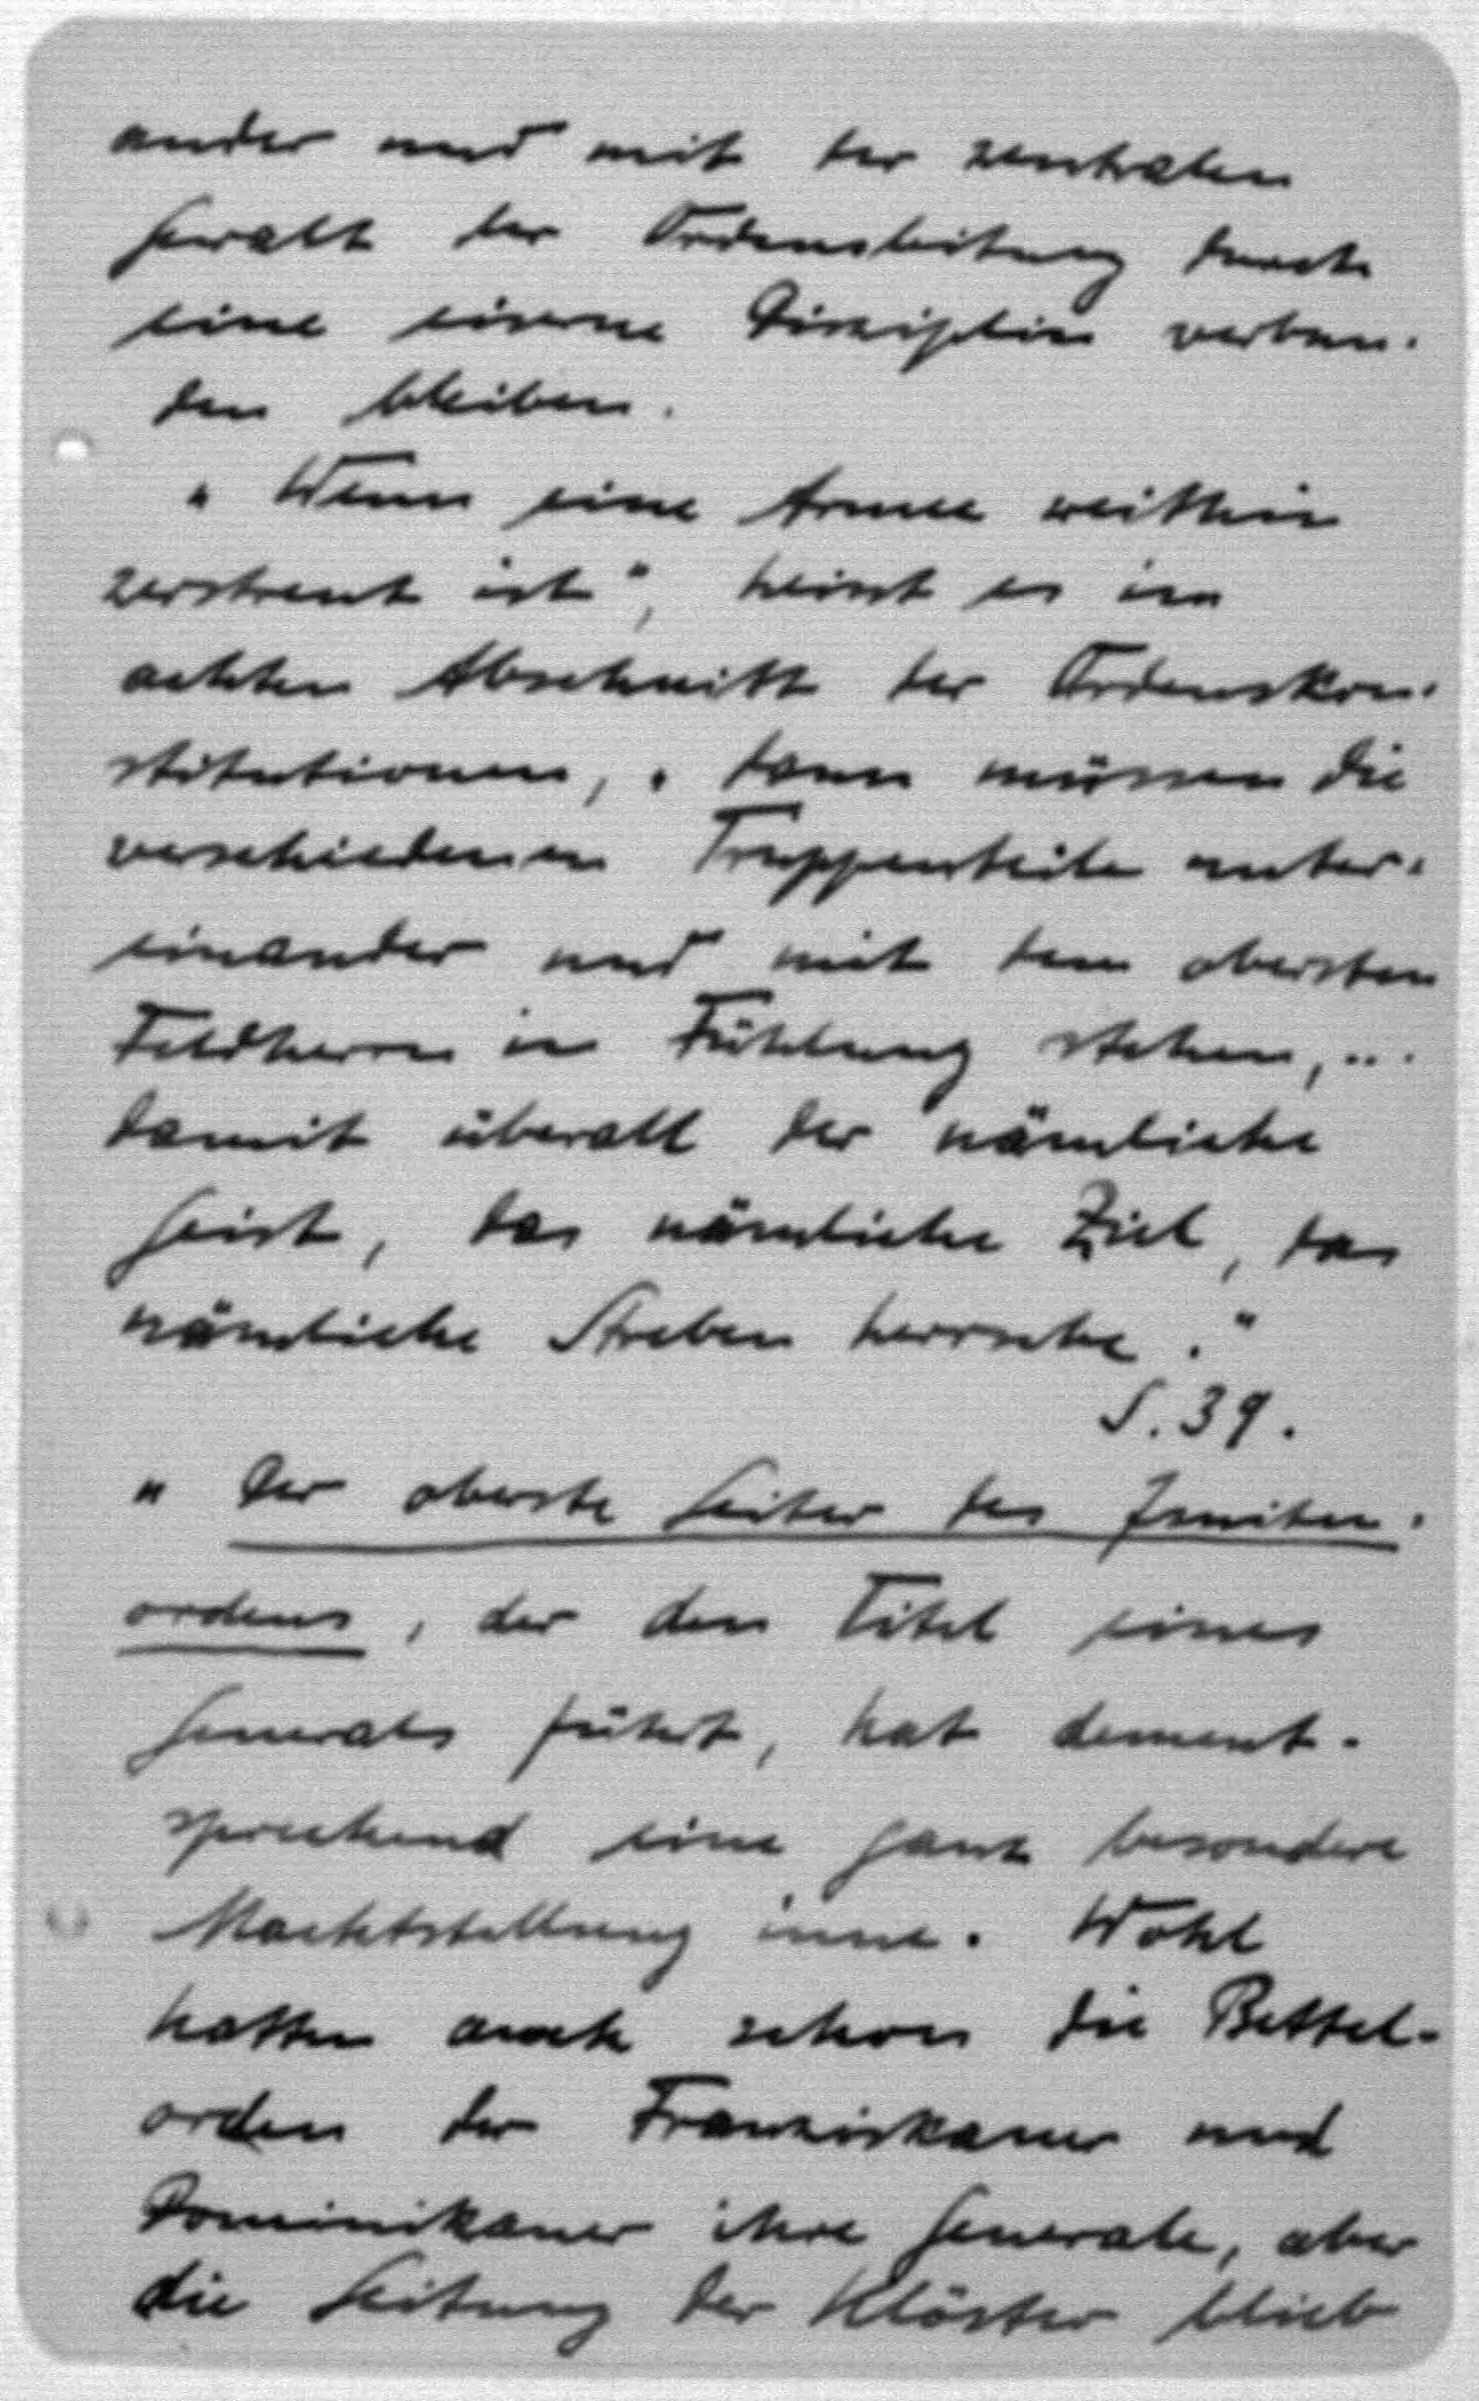 ander und mit der zentralen
Gewalt der Ordensleitung durch
eine eiserne Disziplin verbun-
den bleiben.
„Wenn eine Armee weithin
zerstreut ist", heisst es im
achten Abschnitt der Ordenskon-
stitutionen, „dann müssen die
verschiedenen Truppenteile unter-
einander und mit dem obersten
Feldherrn in Fühlung stehen, ...
damit überall der nämliche
Geist, das nämliche Ziel, das
nämliche Streben herrsche."
S. 39.
„Der oberste Leiter des Jesuiten-
ordens, der den Titel eines
Generals führt, hat dement-
sprechend eine ganz besondere
Machtstellung inne. Wohl
hatten auch schon die Bettel-
orden der Franziskaner und
Dominikaner ihre Generale, aber
die Leitung der Klöster blieb